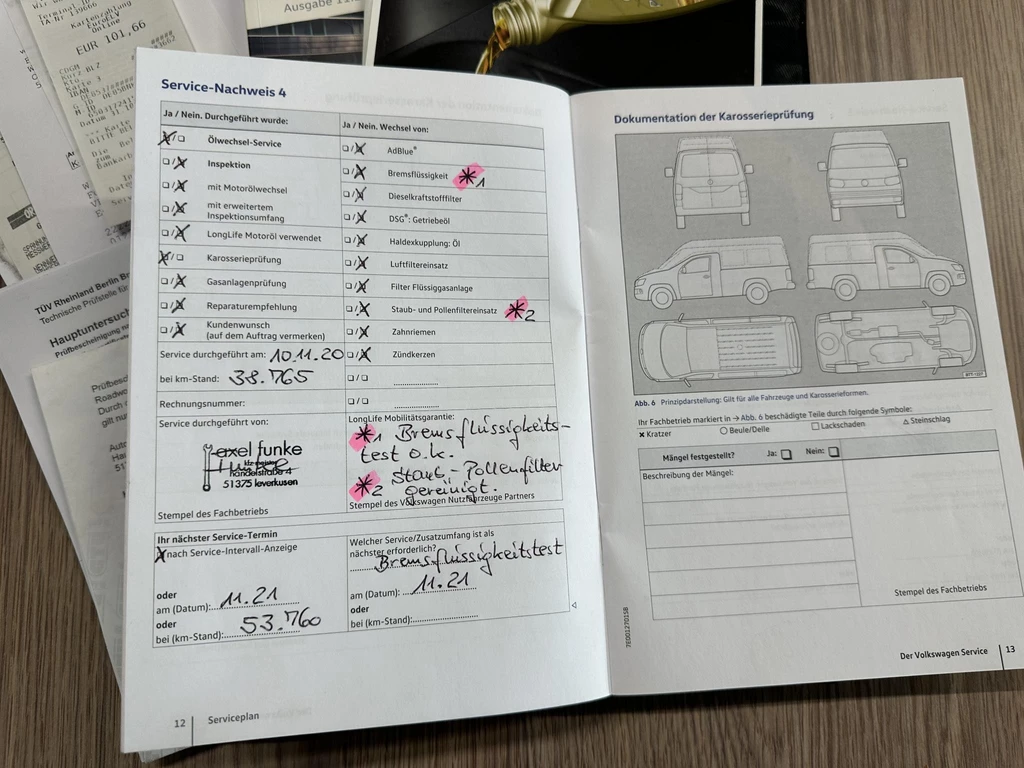 Ausgabe 11.
EUR 101.66
TÜV Rheinland Berlin Br
Technische Prüfstelle für
Hauptuntersuc
Service-Nachweis 4
Ja / Nein. Durchgeführt wurde:
Ölwechsel-Service
Inspektion
mit Motorölwechsel
mit erweitertem
Inspektionsumfang
LongLife Motoröl verwendet
Karosserieprüfung
Gasanlagenprüfung
Reparaturempfehlung
Kundenwunsch
(auf dem Auftrag vermerken)
Service durchgeführt am: 10.11.20
bei km-Stand: 38.765
Rechnungsnummer:
Service durchgeführt von:
axel funke
handelstraße 4
51375 leverkusen
Stempel des Fachbetriebs
Ja / Nein. Wechsel von:
AdBlue®
Bremsflüssigkeit *1
Dieselkraftstofffilter
DSG®: Getriebeöl
Haldexkupplung: Öl
Luftfiltereinsatz
Filter Flüssiggasanlage
Staub- und Pollenfiltereinsatz *2
Zahnriemen
Zündkerzen
LongLife Mobilitätsgarantie:
*1 Bremsflüssigkeits-
test o.k.
*2 Staub-Pollenfilter
gereinigt.
Stempel des Volkswagen Nutzfahrzeuge Partners
Ihr nächster Service-Termin
nach Service-Intervall-Anzeige
oder
am (Datum): 11.21
oder
bei (km-Stand): 53.760
Welcher Service/Zusatzumfang ist als
nächster erforderlich?
Bremsflüssigkeitstest
am (Datum): 11.21
oder
bei (km-Stand):
12 Serviceplan
Dokumentation der Karosserieprüfung
Abb. 6 Prinzipdarstellung: Gilt für alle Fahrzeuge und Karosserieformen.
Ihr Fachbetrieb markiert in → Abb. 6 beschädigte Teile durch folgende Symbole:
× Kratzer ○ Beule/Delle □ Lackschaden △ Steinschlag
Mängel festgestellt? Ja: Nein:
Beschreibung der Mängel:
Stempel des Fachbetriebs
7E0012701SB
Der Volkswagen Service 13